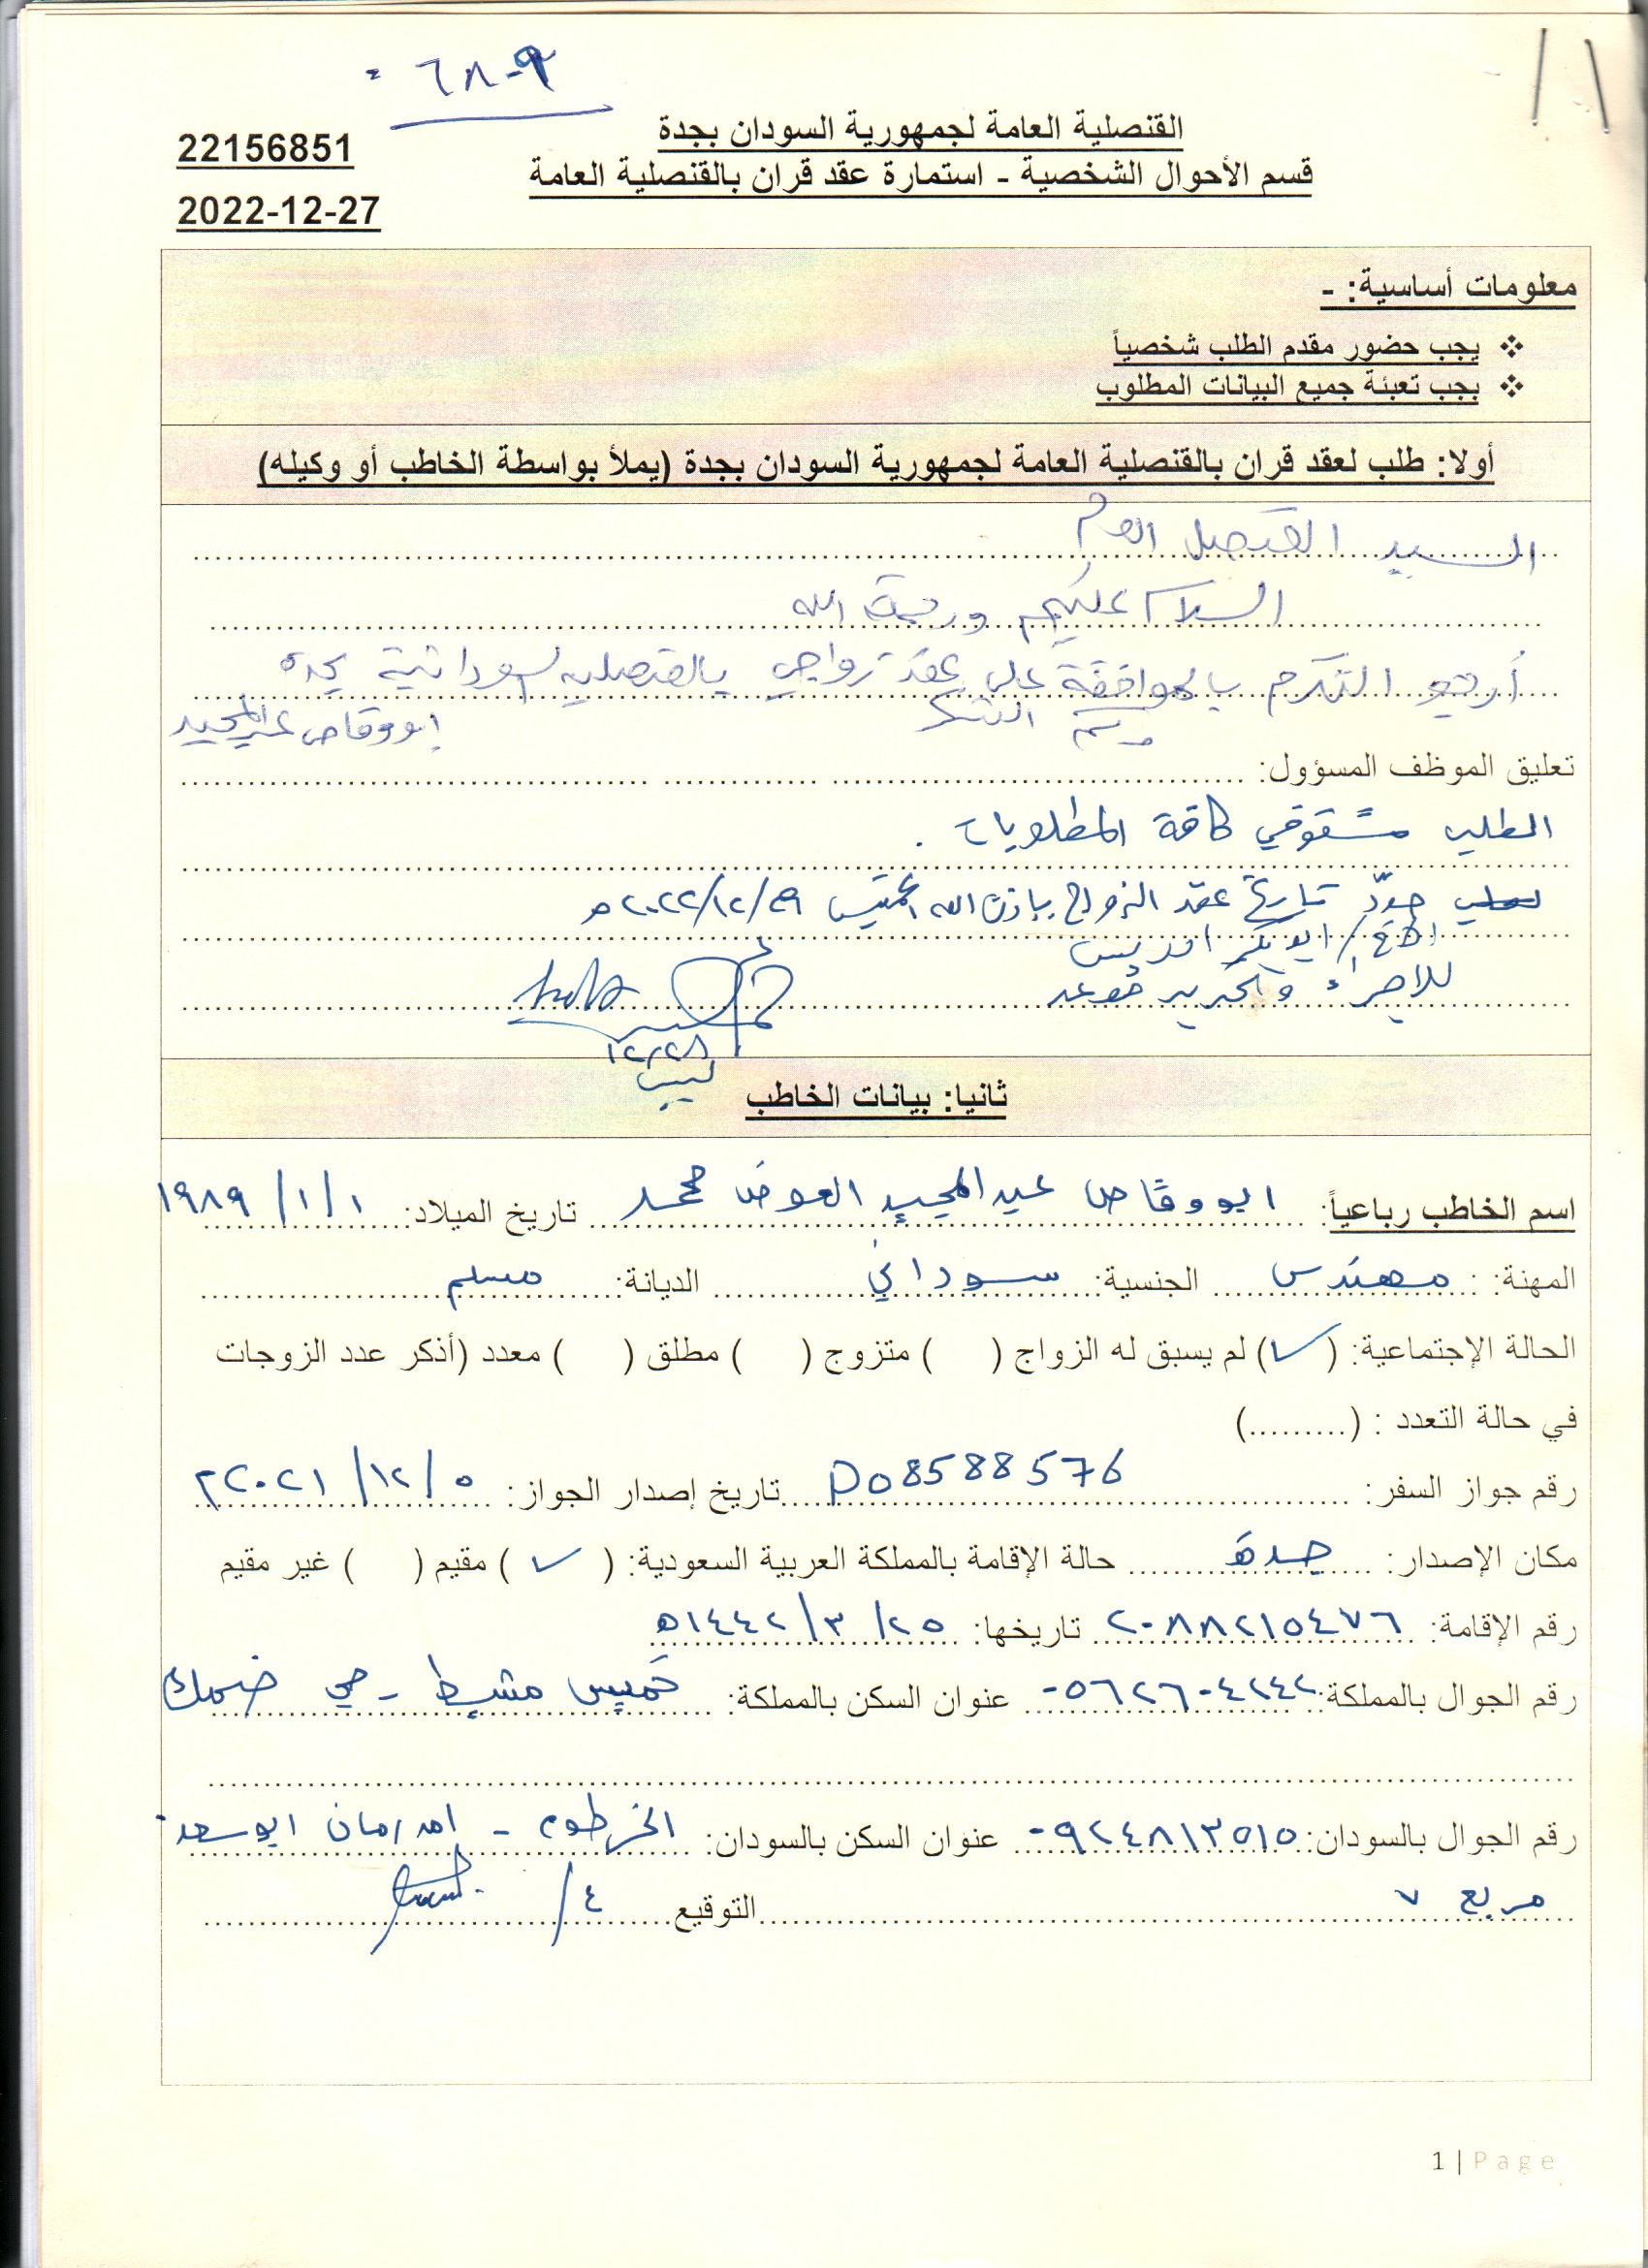 ٦٨٠٩
القنصلية العامة لجمهورية السودان بجدة
22156851
قسم الأحوال الشخصية - استمارة عقد قران بالقنصلية العامة
2022-12-27
معلومات أساسية: -
❖ يجب حضور مقدم الطلب شخصياً
❖ يجب تعبئة جميع البيانات المطلوب
أولا: طلب لعقد قران بالقنصلية العامة لجمهورية السودان بجدة (يملأ بواسطة الخاطب أو وكيله)
السيد القنصل العام
السلام عليكم ورحمة الله
أرجو التكرم بالموافقة على عقد زواجي بالقنصلية السودانية بجدة
الشكر ابو وقاص عبدالمجيد
تعليق الموظف المسؤول:
الطلب مستوفي كافة المطلوبات .
حدّد تاريخ عقد الزواج بإذن الله الخميس ٢٠٢٢/١٢/٢٩م
الأخ/ ابوبكر ادريس
للاجراء وتحديد موعد
١٢/٢٨
ثانيا: بيانات الخاطب
اسم الخاطب رباعياً: ابو وقاص عبدالمجيد العوض محمد تاريخ الميلاد: ١/١/١٩٨٩
المهنة: : مهندس الجنسية: سوداني الديانة: مسلم
الحالة الإجتماعية: (✓) لم يسبق له الزواج ( ) متزوج ( ) مطلق ( ) معدد (أذكر عدد الزوجات
في حالة التعدد : (.........)
رقم جواز السفر: P08588576 تاريخ إصدار الجواز: ٥/١٢/٢٠٢١م
مكان الإصدار: جدة حالة الإقامة بالمملكة العربية السعودية: (✓) مقيم ( ) غير مقيم
رقم الإقامة: ٢٠٨٨٢١٥٤٧٦ تاريخها: ٢٥/٣/١٤٤٢ه
رقم الجوال بالمملكة: ٠٥٦٢٦٠٤٢٤٢ عنوان السكن بالمملكة: خميس مشيط - حي ضمك
رقم الجوال بالسودان: ٠٩٢٤٨١٣٥١٥ عنوان السكن بالسودان: الخرطوم - امدرمان ابوسعد
مربع ٧ التوقيع ٤/
1 | Page